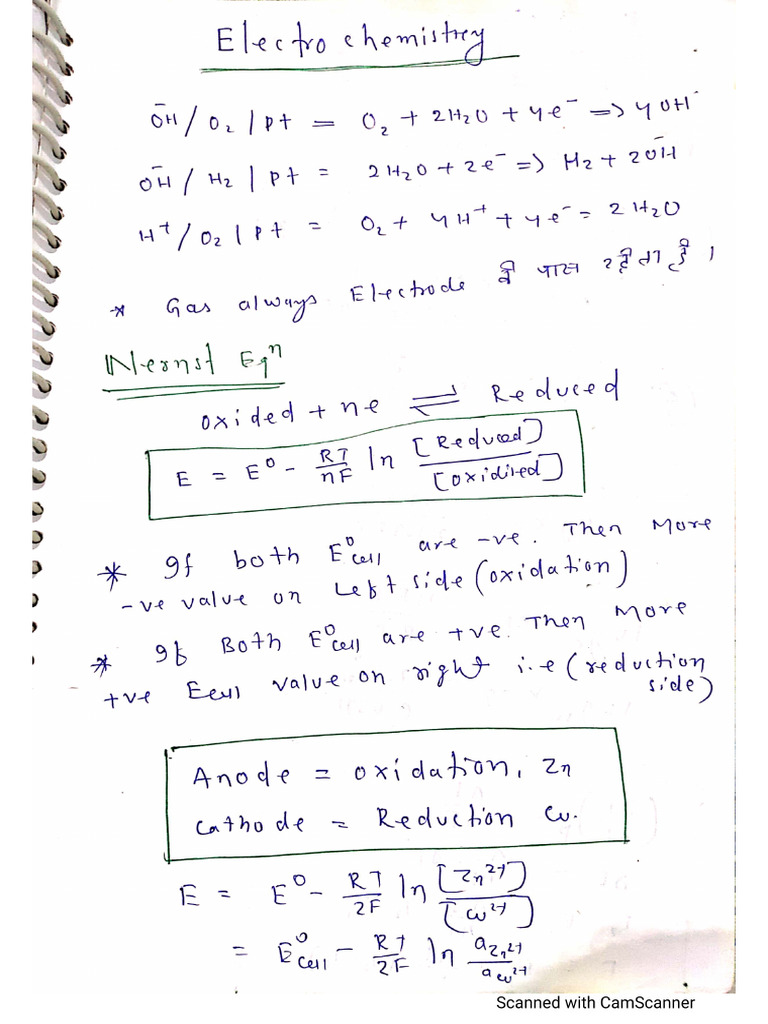 Electro chemistry
ŌH / O₂ | Pt = O₂ + 2H₂O + 4e⁻ => 4OH⁻
ŌH / H₂ | Pt = 2H₂O + 2e⁻ => H₂ + 2ŌH
H⁺ / O₂ | Pt = O₂ + 4H⁺ + 4e⁻ = 2H₂O
* Gas always Electrode के पास रहता है ।
Nernst Eqⁿ
oxided + ne ⇌ Reduced
E = E⁰ - RT/nF ln [Reduced]/[oxidised]
* If both E⁰cell are -ve. Then More
-ve value on Left side (oxidation)
* If Both E⁰cell are +ve. Then More
+ve Ecell value on right i.e (reduction
side)
Anode = oxidation, Zn
Cathode = Reduction Cu.
E = E⁰ - RT/2F ln [Zn²⁺]/[Cu²⁺]
= E⁰cell - RT/2F ln aZn²⁺/aCu²⁺
Scanned with CamScanner